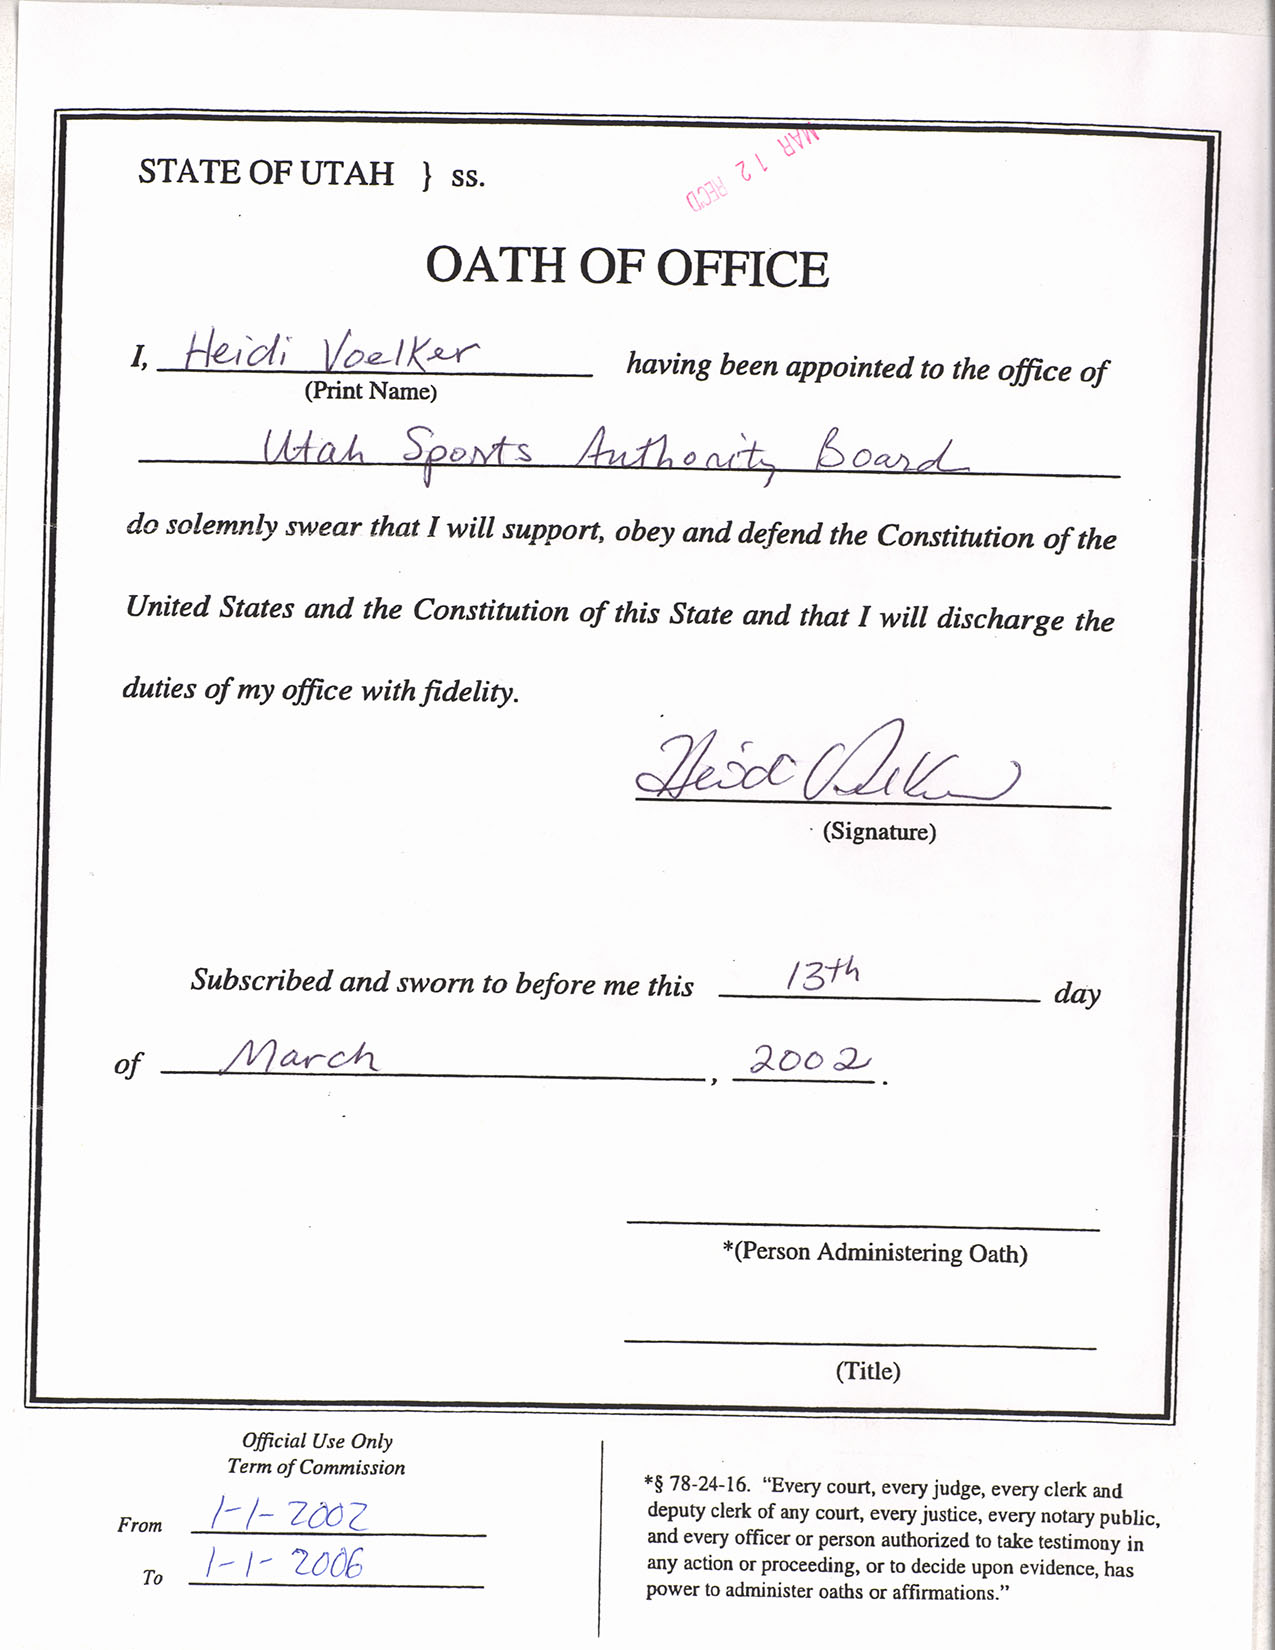 MAR 12 REC'D
STATE OF UTAH } ss.
OATH OF OFFICE
I, Heidi Voelker having been appointed to the office of
(Print Name)
Utah Sports Authority Board
do solemnly swear that I will support, obey and defend the Constitution of the
United States and the Constitution of this State and that I will discharge the
duties of my office with fidelity.
Heidi Voelker
(Signature)
Subscribed and sworn to before me this 13th day
of March, 2002.
*(Person Administering Oath)
(Title)
Official Use Only
Term of Commission
From 1-1-2002
To 1-1-2006
*§ 78-24-16. “Every court, every judge, every clerk and
deputy clerk of any court, every justice, every notary public,
and every officer or person authorized to take testimony in
any action or proceeding, or to decide upon evidence, has
power to administer oaths or affirmations.”